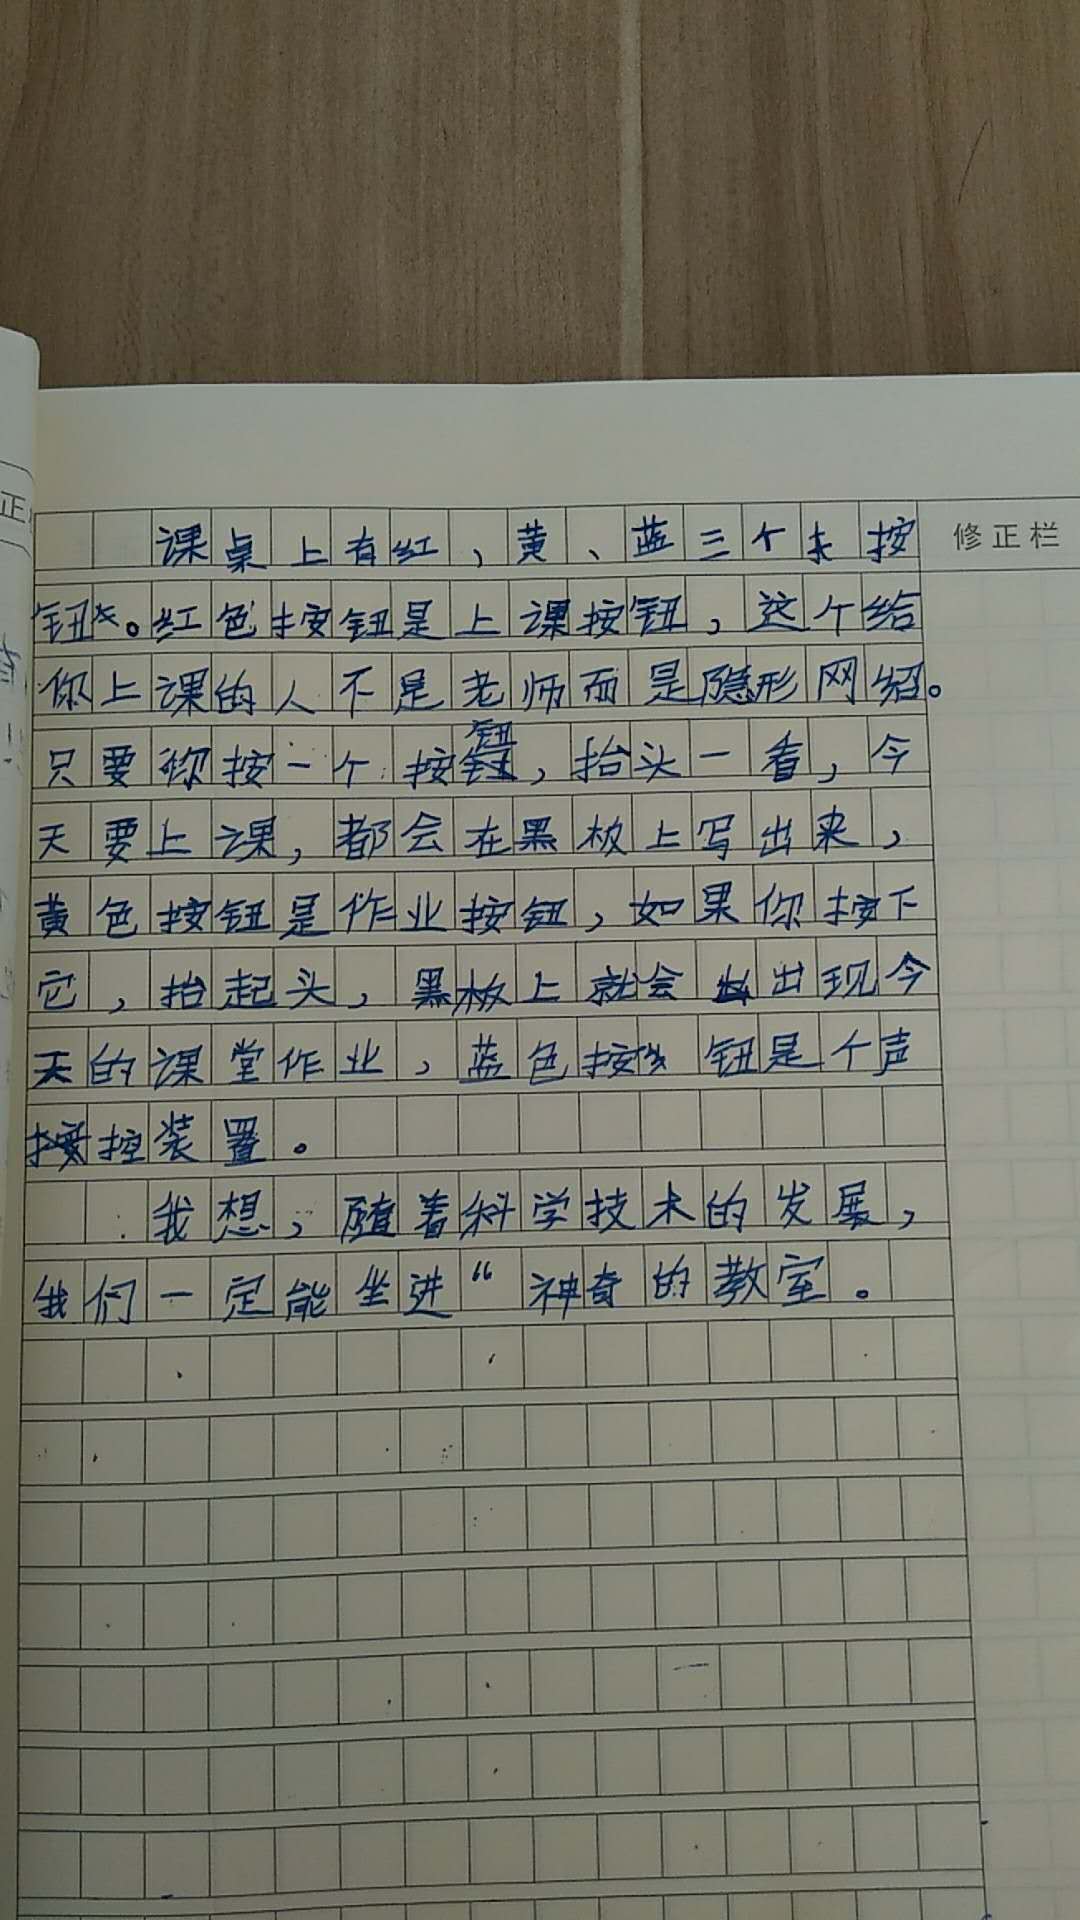 正
修正栏
课桌上有红,黄、蓝三个按
钮。红色按钮是上课按钮,这个给
你上课的人不是老师而是隐形网络。
只要你按一个按钮,抬头一看,今
天要上课,都会在黑板上写出来,
黄色按钮是作业按钮,如果你按下
它,抬起头,黑板上就会出现今
天的课堂作业,蓝色按钮是个声
控装置。
我想,随着科学技术的发展,
我们一定能坐进“神奇的教室。